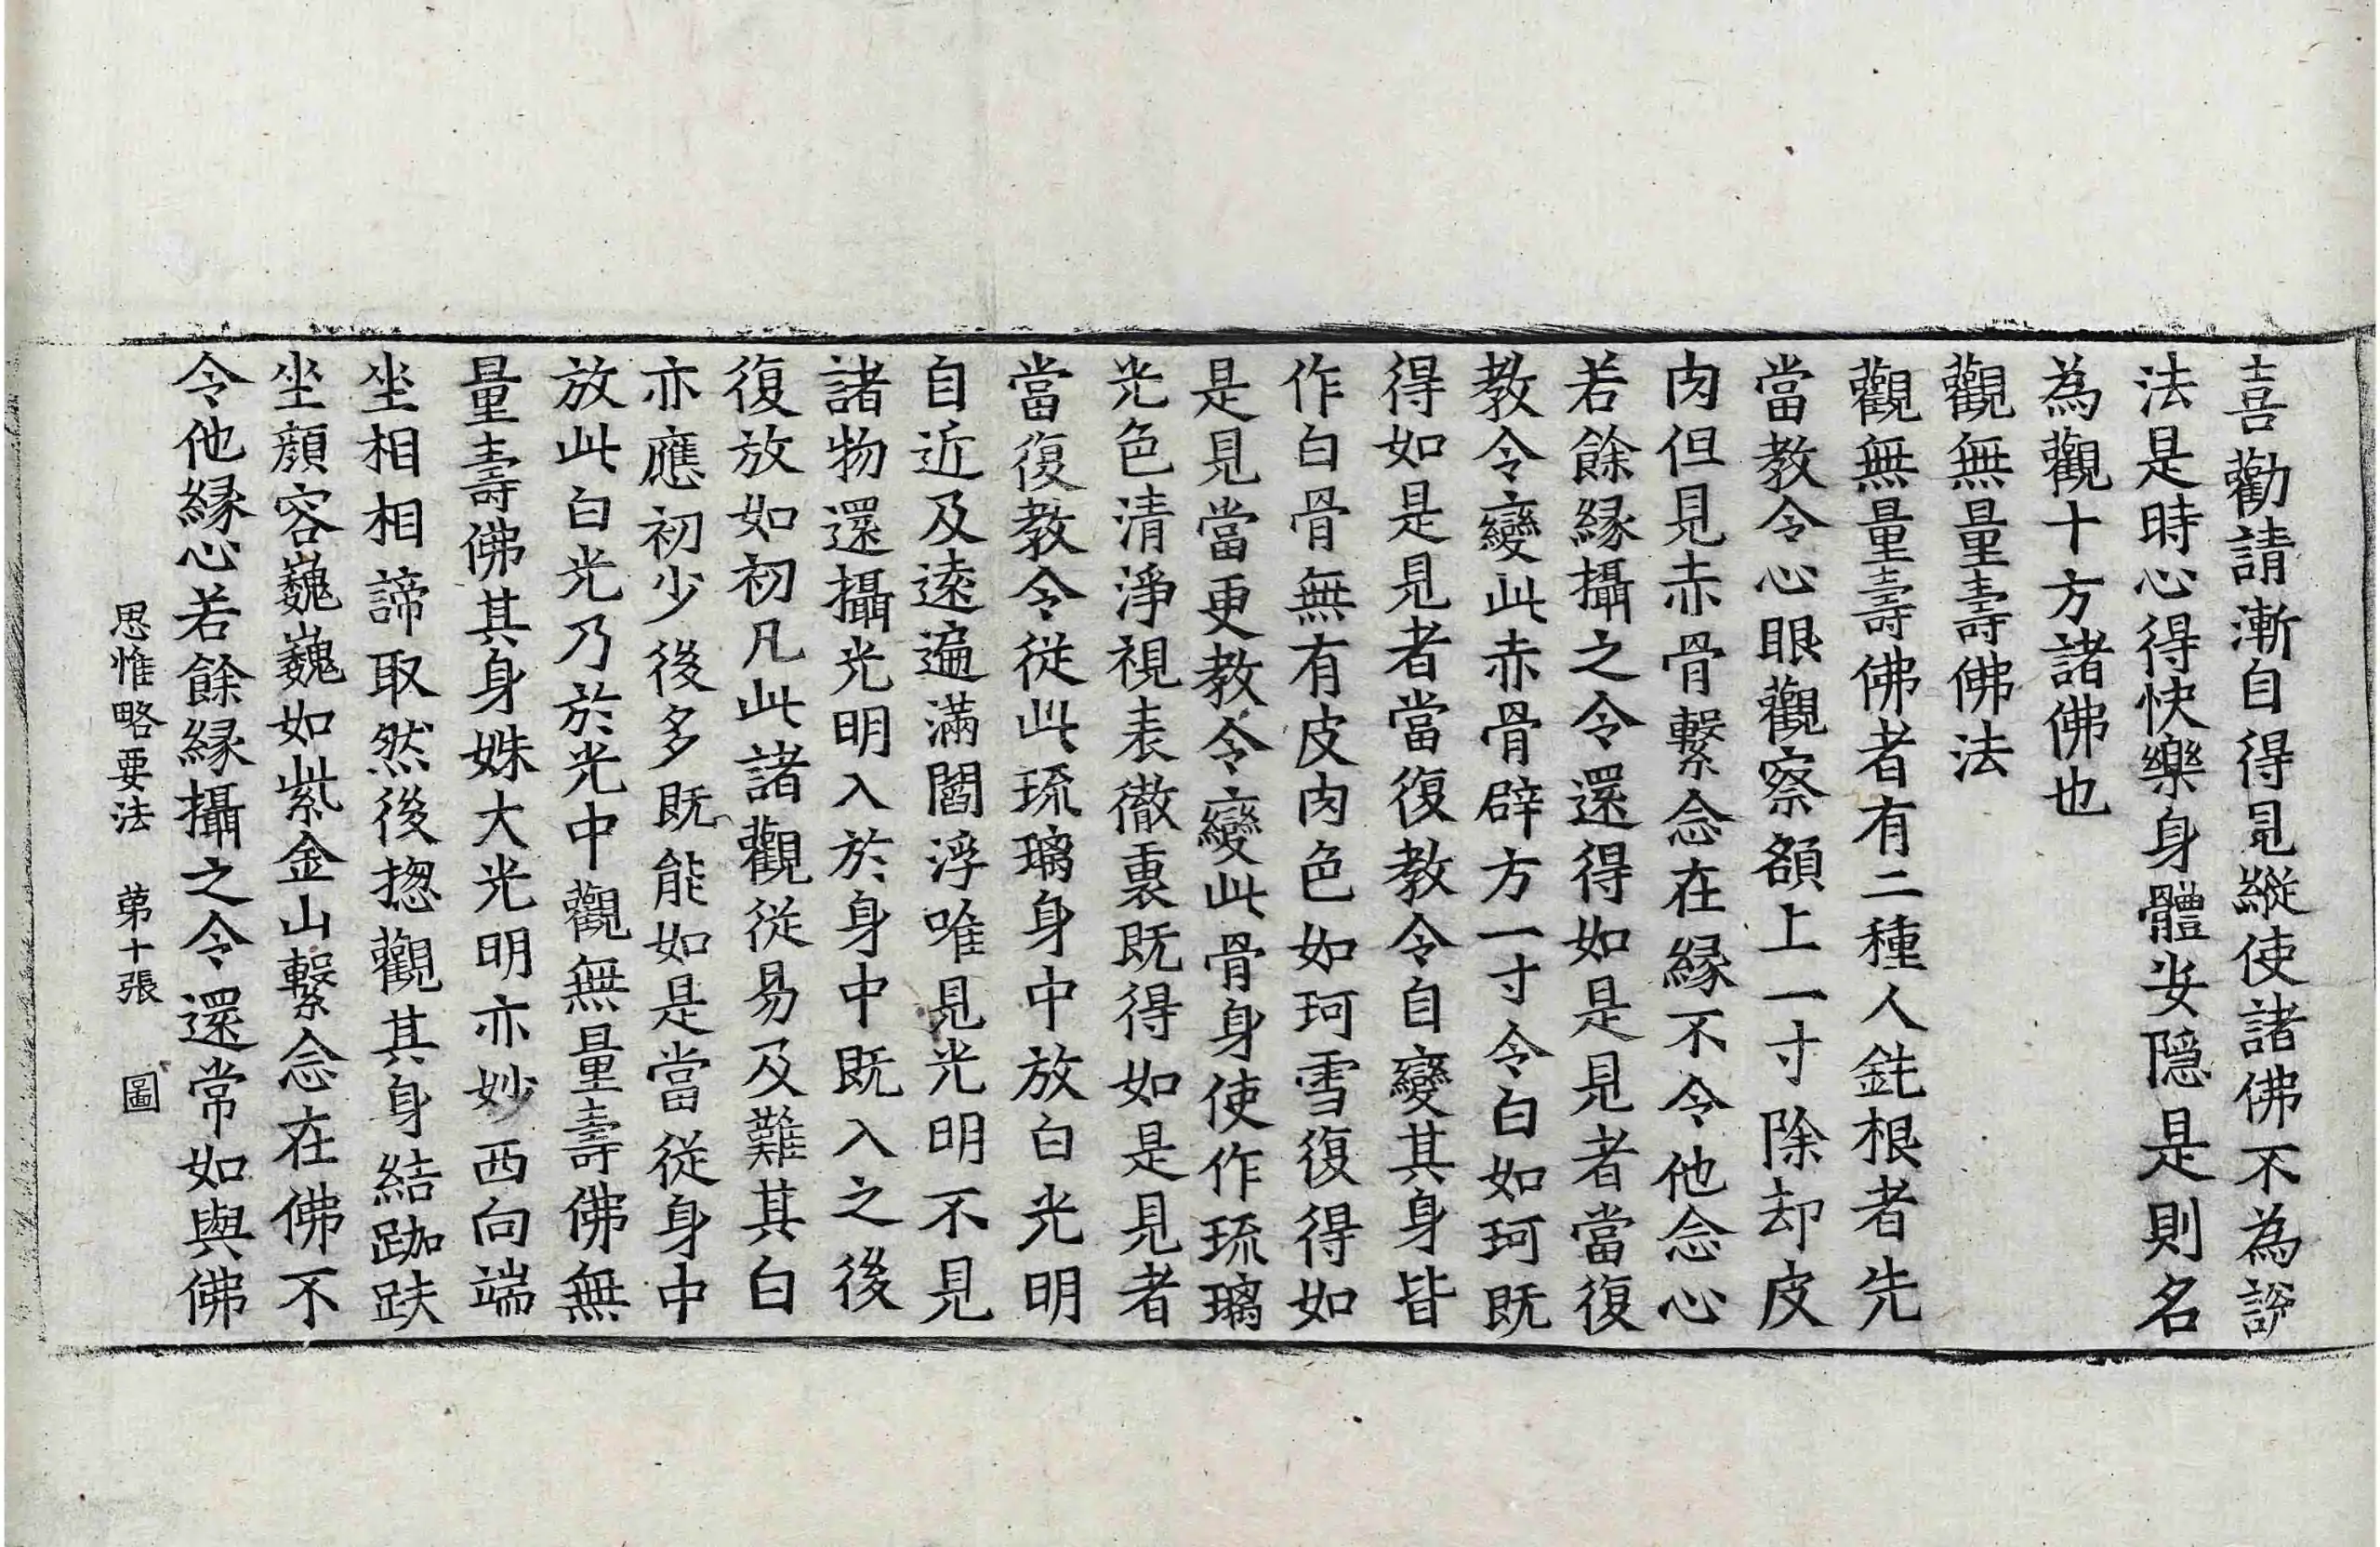 喜勸請漸自得見縱使諸佛不為說
法是時心得快樂身體安隱是則名
為觀十方諸佛也
觀無量壽佛法
觀無量壽佛者有二種人鈍根者先
當教令心眼觀察額上一寸除却皮
肉但見赤骨繫念在緣不令他念心
若餘緣攝之令還得如是見者當復
教令變此赤骨辟方一寸令白如珂既
得如是見者當復教令自變其身皆
作白骨無有皮肉色如珂雪復得如
是見當更教令變此骨身使作琉璃
光色清淨視表徹裏既得如是見者
當復教令從此琉璃身中放白光明
自近及遠遍滿閻浮唯見光明不見
諸物還攝光明入於身中既入之後
復放如初凡此諸觀從易及難其白
亦應初少後多既能如是當從身中
放此白光乃於光中觀無量壽佛無
量壽佛其身姝大光明亦妙西向端
坐相相諦取然後揔觀其身結跏趺
坐顏容巍巍如紫金山繫念在佛不
令他緣心若餘緣攝之令還常如與佛
思惟略要法 苐十張 圖